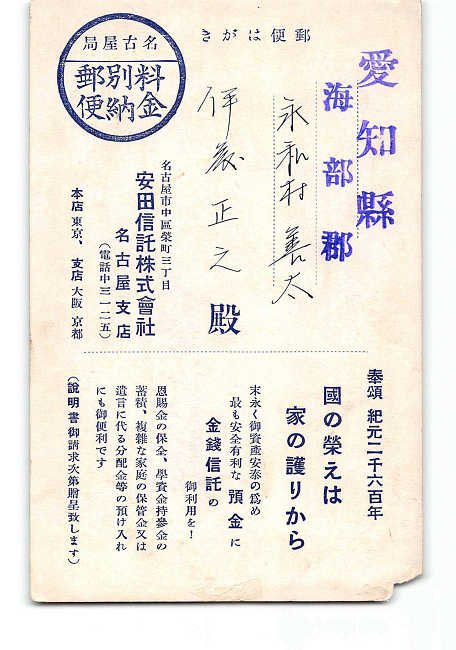 郵便はがき
名古屋局
料金別納郵便
愛知縣
海部郡
永和村 善太
伊藝正之 殿
名古屋市中區榮町三丁目
安田信託株式會社
名古屋支店
(電話中三一二五)
本店 東京、支店 大阪 京都
奉頌 紀元二千六百年
國の榮えは
家の護りから
末永く御資產安泰の爲め
最も安全有利な 預金 に
金錢信託の
御利用を!
恩賜金の保全、學資金持參金の
蓄積、複雜な家庭の保管金又は
遺言に代る分配金等の預け入れ
にも御便利です
(說明書御請求次第贈呈致します)